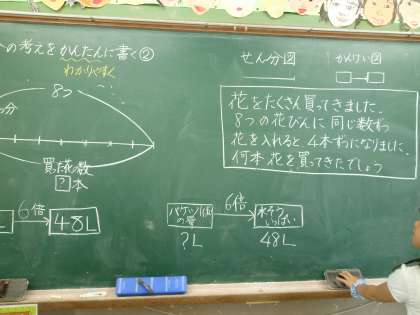 の考えをかんたんに書く②
わかりやすく
8つ
分
買った花の数
?本
6倍
48L
せん分図
かんけい図
花をたくさん買ってきました。
8つの花びんに同じ数ずつ
花を入れると、4本ずつになりました。
何本花を買ってきたでしょう
6倍
水そう
いっぱい
の量
?L
48L